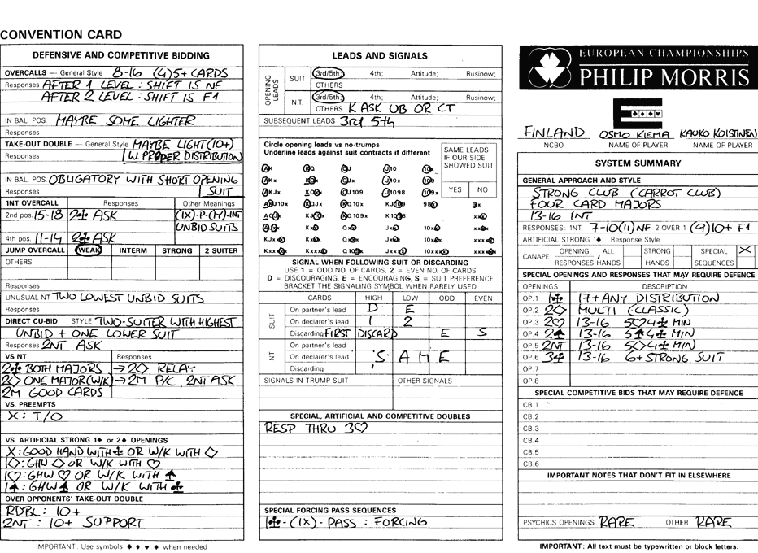 CONVENTION CARD
DEFENSIVE AND COMPETITIVE BIDDING
OVERCALLS — General Style 8-16 (4)5+ CARDS
Responses AFTER 1 LEVEL: SHIFT IS NF
AFTER 2 LEVEL: SHIFT IS F1
IN BAL POS MAYBE SOME LIGHTER
Responses
TAKE-OUT DOUBLE — General Style MAYBE LIGHT (10+)
Responses W. PROPER DISTRIBUTION
IN BAL POS OBLIGATORY WITH SHORT OPENING
Responses SUIT
1NT OVERCALL Responses Other Meanings
2nd pos. 15-18 2♣ ASK (1X)-P-(1Y)-1NT
UNBID SUITS
4th pos. 11-14 2♣ ASK
JUMP OVERCALL WEAK INTERM STRONG 2 SUITER
OTHERS
Responses
UNUSUAL NT TWO LOWEST UNBID SUITS
Responses
DIRECT CU-BID STYLE TWO-SUITER WITH HIGHEST
UNBID + ONE LOWER SUIT
Responses 2NT ASK
VS NT Responses
2♣ BOTH MAJORS → 2♦ RELAY
2♦ ONE MAJOR (W/K) → 2M P/C 2NT ASK
2M GOOD CARDS
VS. PREEMPTS
X: T/O
VS ARTIFICIAL STRONG 1♣ OR 2♣ OPENINGS
X: GOOD HAND WITH ♣ OR W/K WITH ♦
1♦: GHW ♦ OR W/K WITH ♥
1♥: GHW ♥ OR W/K WITH ♠
1♠: GHW ♠ OR W/K WITH ♣
OVER OPPONENTS' TAKE-OUT DOUBLE
RDBL: 10+
2NT: 10+ SUPPORT
IMPORTANT: Use symbols ♣ ♦ ♥ ♠ when needed
LEADS AND SIGNALS
OPENING LEADS
SUIT 3rd/5th; 4th; Attitude; Rusinow;
OTHERS
N.T. 3rd/5th; 4th; Attitude; Rusinow;
OTHERS K ASK UB OR CT
SUBSEQUENT LEADS 3rd 5th
Circle opening leads vs no-trumps
Underline leads against suit contracts if different
SAME LEADS
IF OUR SIDE
SHOWED SUIT
YES NO
SIGNAL WHEN FOLLOWING SUIT OF DISCARDING
USE 1 = ODD NO. OF CARDS, 2 = EVEN NO. OF CARDS
D = DISCOURAGING, E = ENCOURAGING, S = SUIT PREFERENCE
BRACKET THE SIGNALING SYMBOL WHEN RARELY USED
CARDS HIGH LOW ODD EVEN
SUIT
On partner's lead D E
On declarer's lead 1 2
Discarding FIRST DISCARD E S
NT
On partner's lead
On declarer's lead SAME
Discarding
SIGNALS IN TRUMP SUIT OTHER SIGNALS
SPECIAL, ARTIFICIAL AND COMPETITIVE DOUBLES
RESP THRU 3♥
SPECIAL FORCING PASS SEQUENCES
1♣-(1X)-PASS: FORCING
EUROPEAN CHAMPIONSHIPS
PHILIP MORRIS
FINLAND OSMO KIEMA KAUKO KOISTINEN
NCBO NAME OF PLAYER NAME OF PLAYER
SYSTEM SUMMARY
GENERAL APPROACH AND STYLE
STRONG CLUB (CARROT CLUB)
FOUR CARD MAJORS
13-16 1NT
RESPONSES: 1NT 7-10(11) NF 2 OVER 1 (9)10+ F1
ARTIFICIAL STRONG ♣ Response Style
CANAPE OPENING / ALL STRONG SPECIAL X
RESPONSES HANDS HANDS SEQUENCES
SPECIAL OPENINGS AND RESPONSES THAT MAY REQUIRE DEFENCE
OPENINGS DESCRIPTION
OP.1 1♣ 17+ ANY DISTRIBUTION
OP.2 2♦ MULTI (CLASSIC)
OP.3 2♥ 13-16 5♥4♣ MIN
OP.4 2♠ 13-16 5♠4♣ MIN
OP.5 2NT 13-16 5♦4♣ MIN
OP.6 3♣ 13-16 6+ STRONG SUIT
OP.7
OP.8
SPECIAL COMPETITIVE BIDS THAT MAY REQUIRE DEFENCE
CB.1
CB.2
CB.3
CB.4
CB.5
CB.6
IMPORTANT NOTES THAT DON'T FIT IN ELSEWHERE
PSYCHICS OPENINGS RARE OTHER RARE
IMPORTANT: All text must be typewritten or block letters.